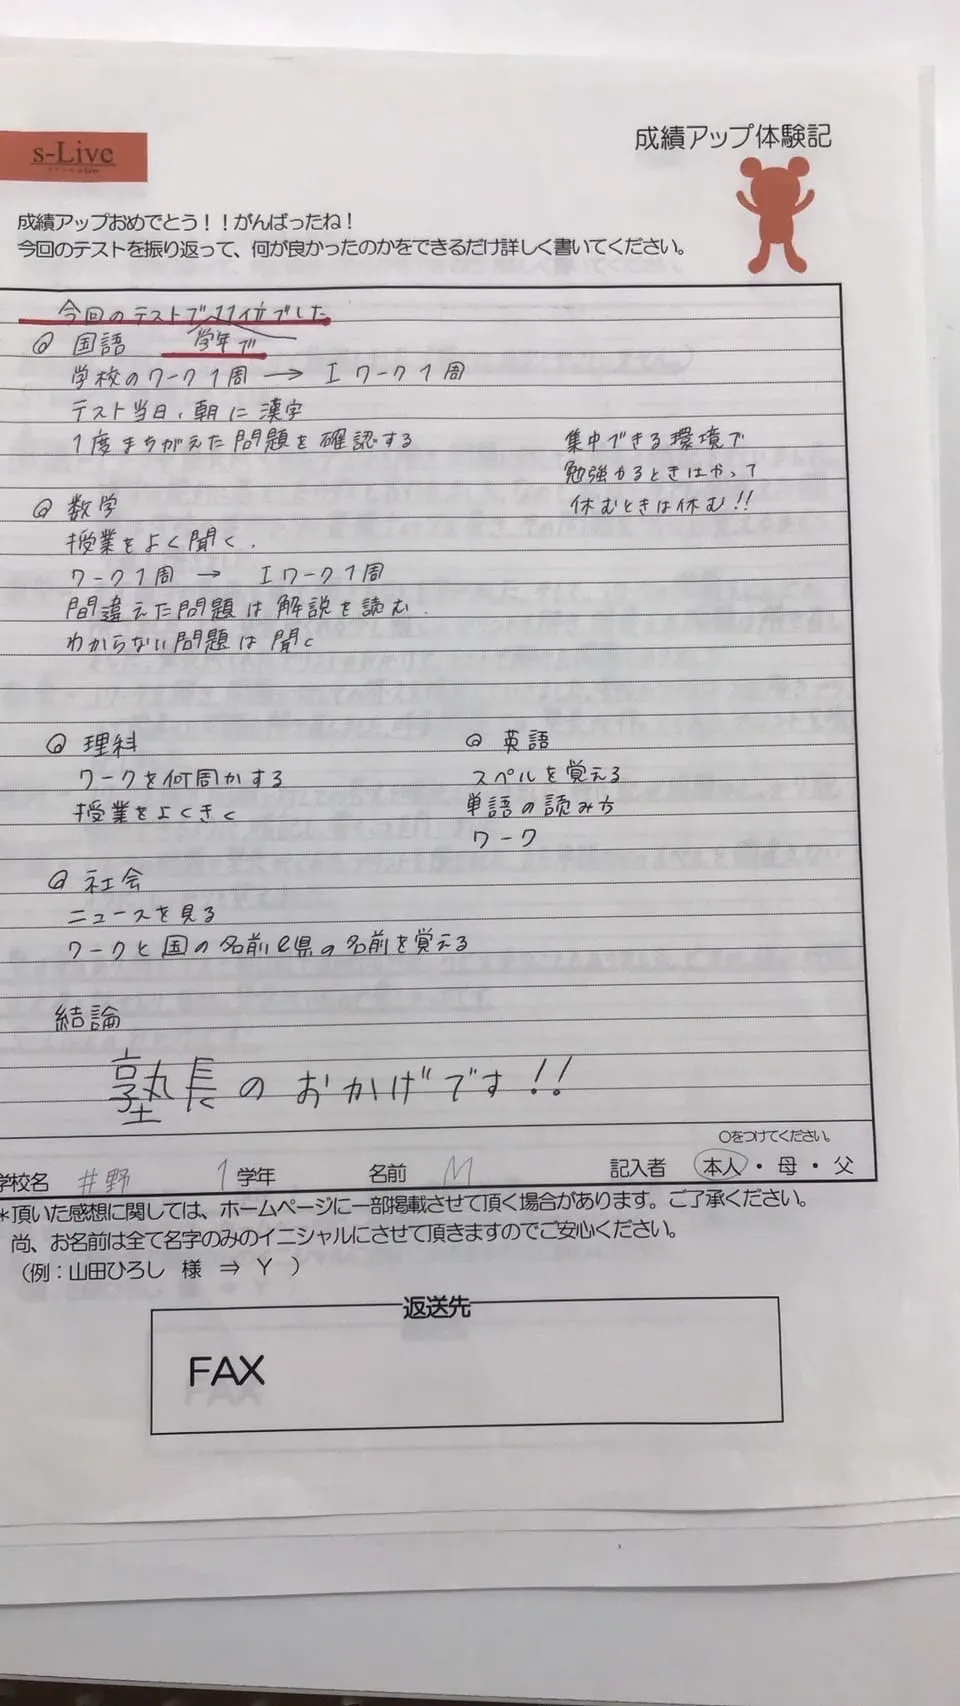 s-Live
成績アップ体験記
成績アップおめでとう！！がんばったね！
今回のテストを振り返って、何が良かったのかをできるだけ詳しく書いてください。
今回のテストで11位でした
学年で
◎ 国語
学校のワーク1周 → Iワーク1周
テスト当日、朝に漢字
1度まちがえた問題を確認する
集中できる環境で
勉強やるときはやって
休むときは休む!!
◎ 数学
授業をよく聞く.
ワーク1周 → Iワーク1周
間違えた問題は解説を読む.
わからない問題は聞く
◎ 理科
ワークを何周かする
授業をよくきく
◎ 英語
スペルを覚える
単語の読み方
ワーク
◎ 社会
ニュースを見る
ワークと国の名前と県の名前を覚える
結論
塾長のおかげです!!
○をつけてください。
学校名 井野 1学年 名前 M 記入者 本人・母・父
*頂いた感想に関しては、ホームページに一部掲載させて頂く場合があります。ご了承ください。
尚、お名前は全て名字のみのイニシャルにさせて頂きますのでご安心ください。
（例：山田ひろし 様 ⇒ Y ）
返送先
FAX